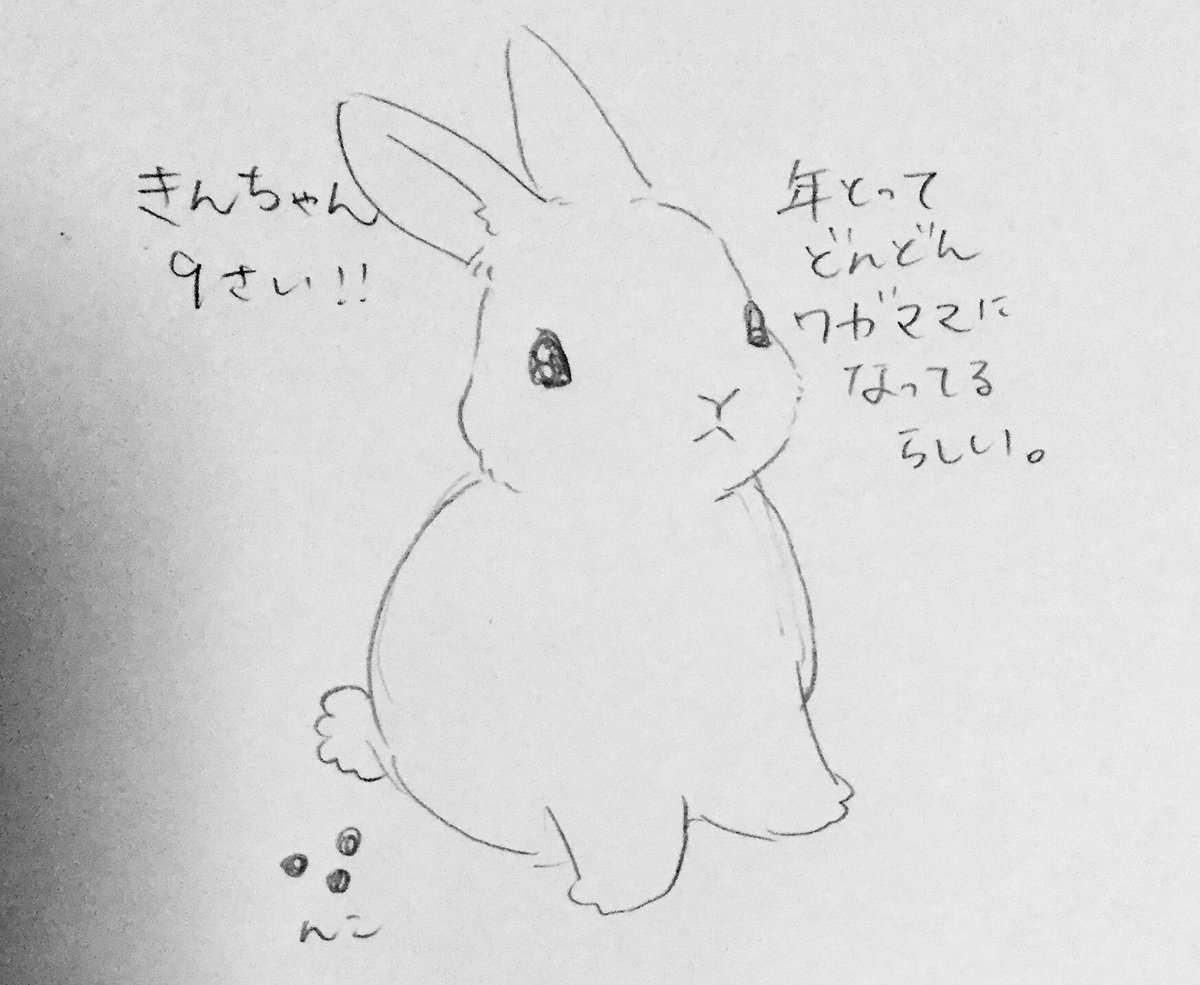 きんちゃん
9さい!!
年とって
どんどん
ワガママに
なってる
らしい。
んこ